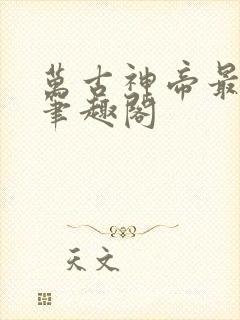 萬古神帝最
筆趣閣
天文